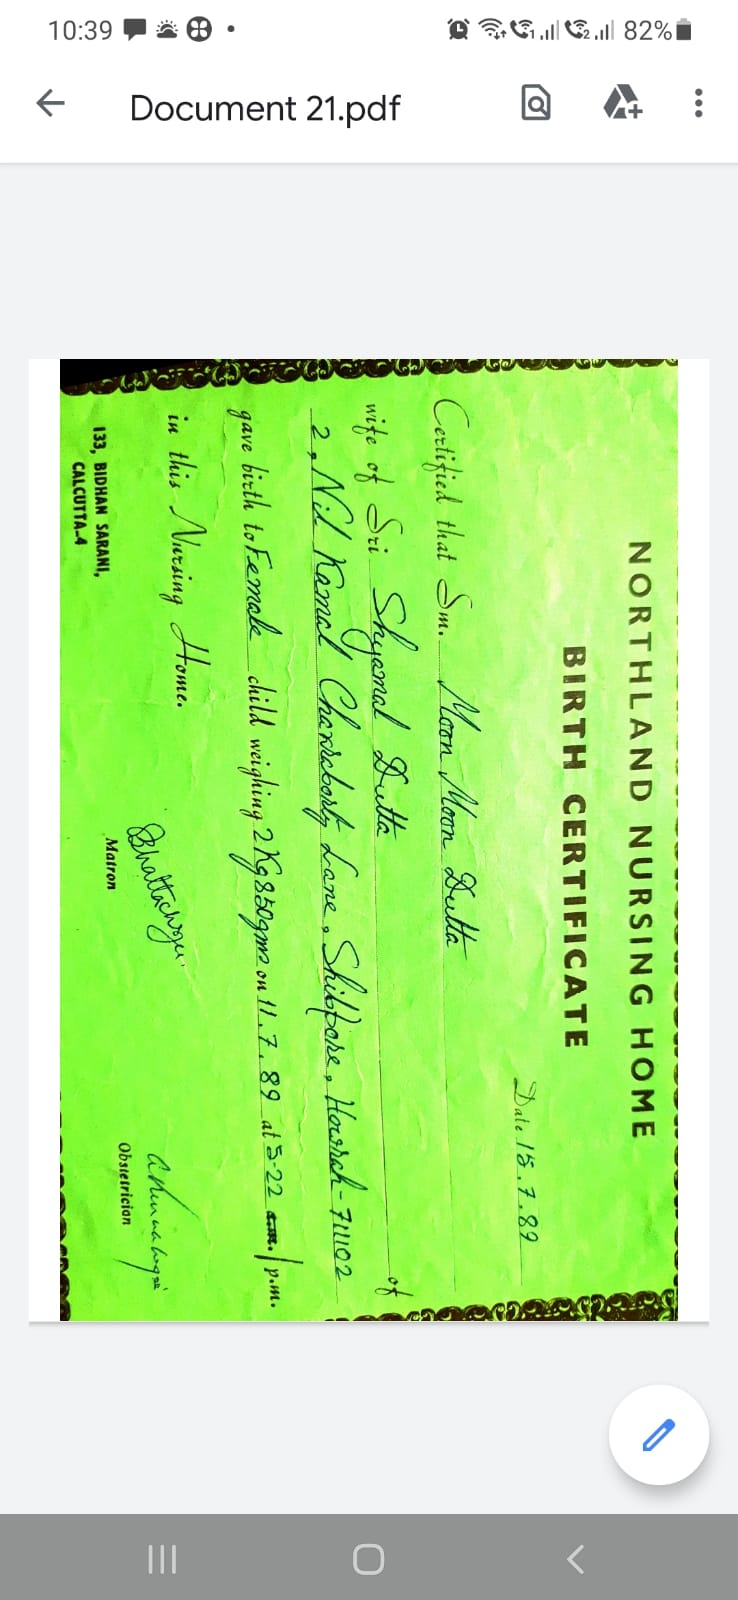 10:39
82%
Document 21.pdf
NORTHLAND NURSING HOME
BIRTH CERTIFICATE
Date 15.7.89
Certified that Sm. Moon Moon Dutta
wife of Sri Shyamal Dutta of
2, Nil Kamal Charraborty Lane, Shibpore, Howrah-711102
gave birth to Female child weighing 2Kg850gms on 11.7.89 at 5-22 a.m./p.m.
in this Nursing Home.
Bhattacharya
133, BIDHAN SARANI,
CALCUTTA-4
Matron
Obstetrician